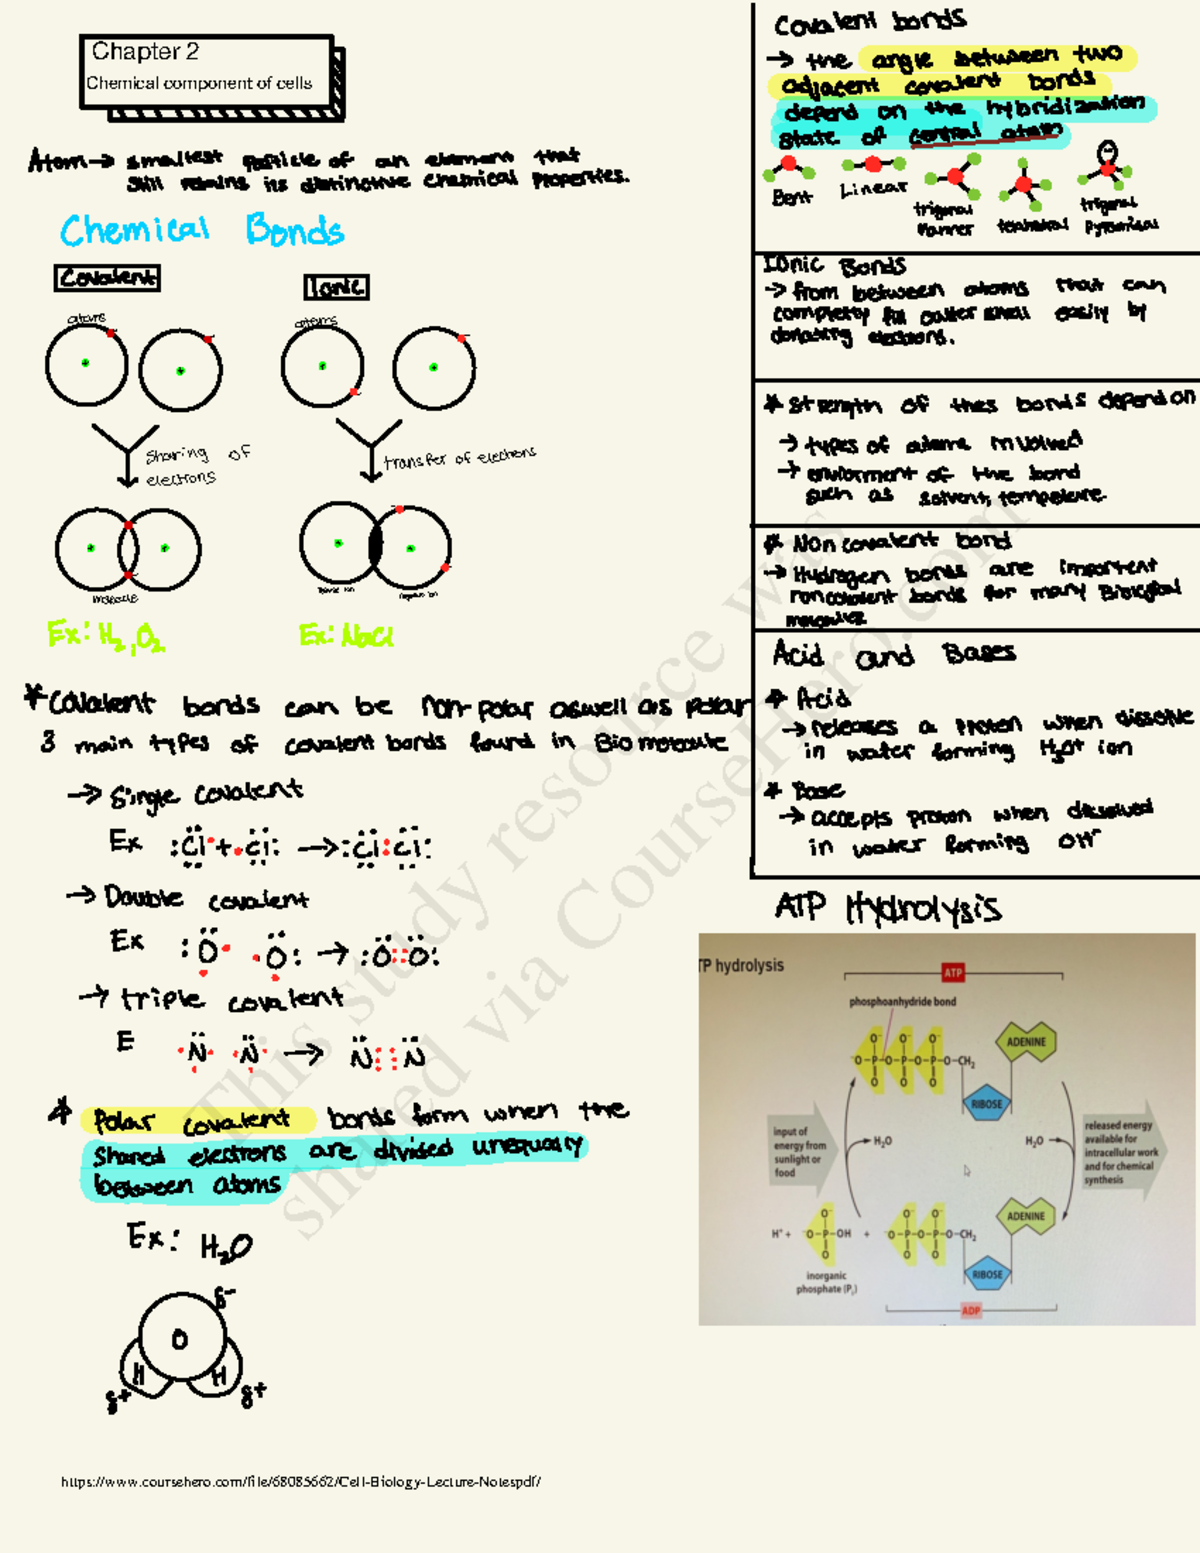 Chapter 2
Chemical component of cells
Atom→ smallest particle of an element that
still remains its distinctive chemical properties.
Chemical Bonds
Covalent
Ionic
atoms
atoms
sharing of
electrons
transfer of electrons
molecule
Ex: H₂,O₂
Ex: NaCl
* Covalent bonds can be non-polar aswell as polar
3 main types of covalent bonds found in Biomolecule
→ Single covalent
Ex :Cl·+·Cl: →:Cl:Cl:
→ Double covalent
Ex :O· ·O: → :O::O:
→ triple covalent
E ·N· ·N· → N:::N
* Polar covalent bonds form when the
shared electrons are divided unequally
between atoms
Ex: H₂O
δ-
O
H H
δ+ δ+
Covalent bonds
→ the angle between two
adjacent covalent bonds
depend on the hybridization
state of central atom
Bent
Linear
trigonal
planner
trigonal
pyramidal
Ionic Bonds
→ from between atoms that can
outer shell easily by
donating electrons.
* Strength of thes bonds depend on
→ types of atoms involved
→ of the bond
such as solvent,
* Non covalent bond
→ Hydrogen bonds are important
noncovalent bonds for many Biological
Acid and Bases
* Acid
→ releases a proton when dissolve
in water forming H₃O+ ion
* Base
→ accepts proton when dissolved
in water forming OH-
ATP Hydrolysis
TP hydrolysis
ATP
phosphoanhydride bond
O⁻ O⁻ O⁻
⁻O–P–O–P–O–P–O–CH₂
O O O
ADENINE
RIBOSE
input of
energy from
sunlight or
food
H₂O
H₂O
released energy
available for
intracellular work
and for chemical
synthesis
O⁻ O⁻ O⁻
H⁺ + ⁻O–P–OH + ⁻O–P–O–P–O–CH₂
O O O
ADENINE
RIBOSE
inorganic
phosphate (Pᵢ)
ADP
This study resource was
shared via CourseHero.com
https://www.coursehero.com/file/68085662/Cell-Biology-Lecture-Notespdf/